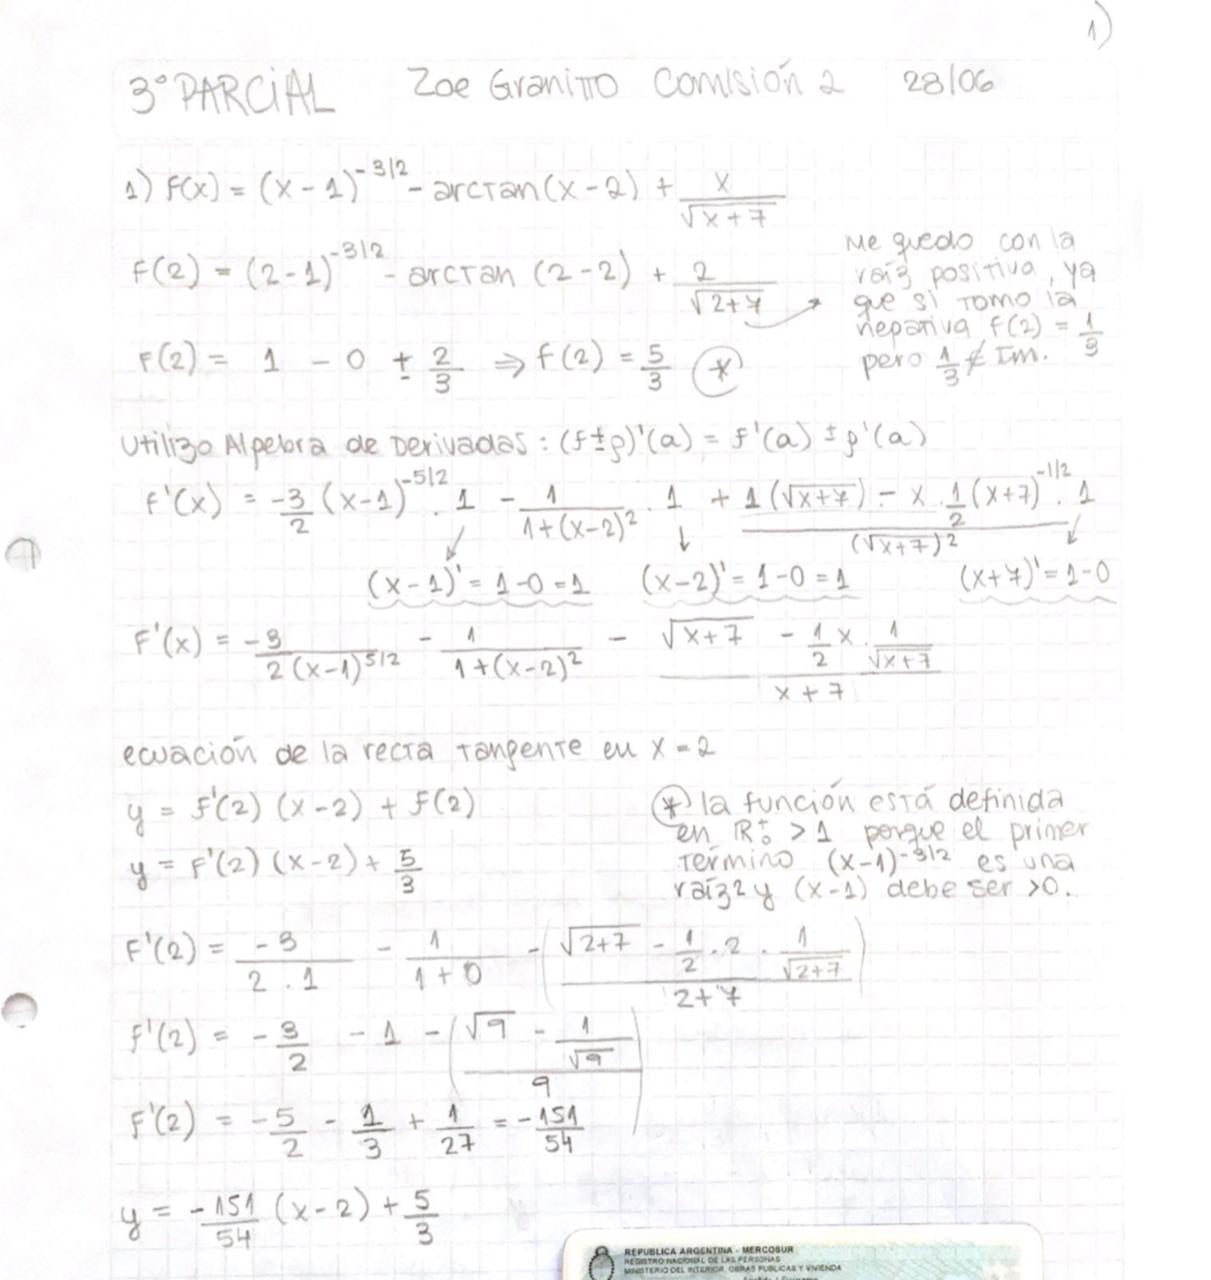 1)
3° PARCIAL Zoe Granitto Comisión 2 28/06
1) f(x) = (x - 1)^{-3/2} - arctan(x - 2) + \frac{x}{\sqrt{x+7}}
f(2) = (2-1)^{-3/2} - arctan (2-2) + \frac{2}{\sqrt{2+7}} →
Me quedo con la
raíz positiva, ya
que si tomo la
negativa f(2) = \frac{1}{3}
pero \frac{1}{3} ∉ Im.
f(2) = 1 - 0 ± \frac{2}{3} ⇒ f(2) = \frac{5}{3} (*)
Utilizo Algebra de Derivadas : (f±g)'(a) = f'(a) ± g'(a)
f'(x) = \frac{-3}{2} (x-1)^{-5/2} . 1 - \frac{1}{1+(x-2)^2} . 1 + \frac{1(\sqrt{x+7}) - x . \frac{1}{2}(x+7)^{-1/2} . 1}{(\sqrt{x+7})^2}
(x-1)' = 1-0 = 1 (x-2)' = 1-0 = 1 (x+7)' = 1-0
f'(x) = \frac{-3}{2(x-1)^{5/2}} - \frac{1}{1+(x-2)^2} - \frac{\sqrt{x+7} - \frac{1}{2}x . \frac{1}{\sqrt{x+7}}}{x+7}
ecuación de la recta tangente en x = 2
y = f'(2) (x-2) + f(2)
y = f'(2) (x-2) + \frac{5}{3}
(*) la función está definida
en R_0^+ > 1 porque el primer
término (x-1)^{-3/2} es una
raíz2 y (x-1) debe ser >0.
f'(2) = \frac{-3}{2 . 1} - \frac{1}{1+0} - (\frac{\sqrt{2+7} - \frac{1}{2} . 2 . \frac{1}{\sqrt{2+7}}}{2+7})
f'(2) = -\frac{3}{2} - 1 - (\frac{\sqrt{9} - \frac{1}{\sqrt{9}}}{9})
f'(2) = -\frac{5}{2} - \frac{1}{3} + \frac{1}{27} = -\frac{151}{54}
y = -\frac{151}{54} (x-2) + \frac{5}{3}
REPUBLICA ARGENTINA - MERCOSUR
REGISTRO NACIONAL DE LAS PERSONAS
MINISTERIO DEL INTERIOR, OBRAS PUBLICAS Y VIVIENDA